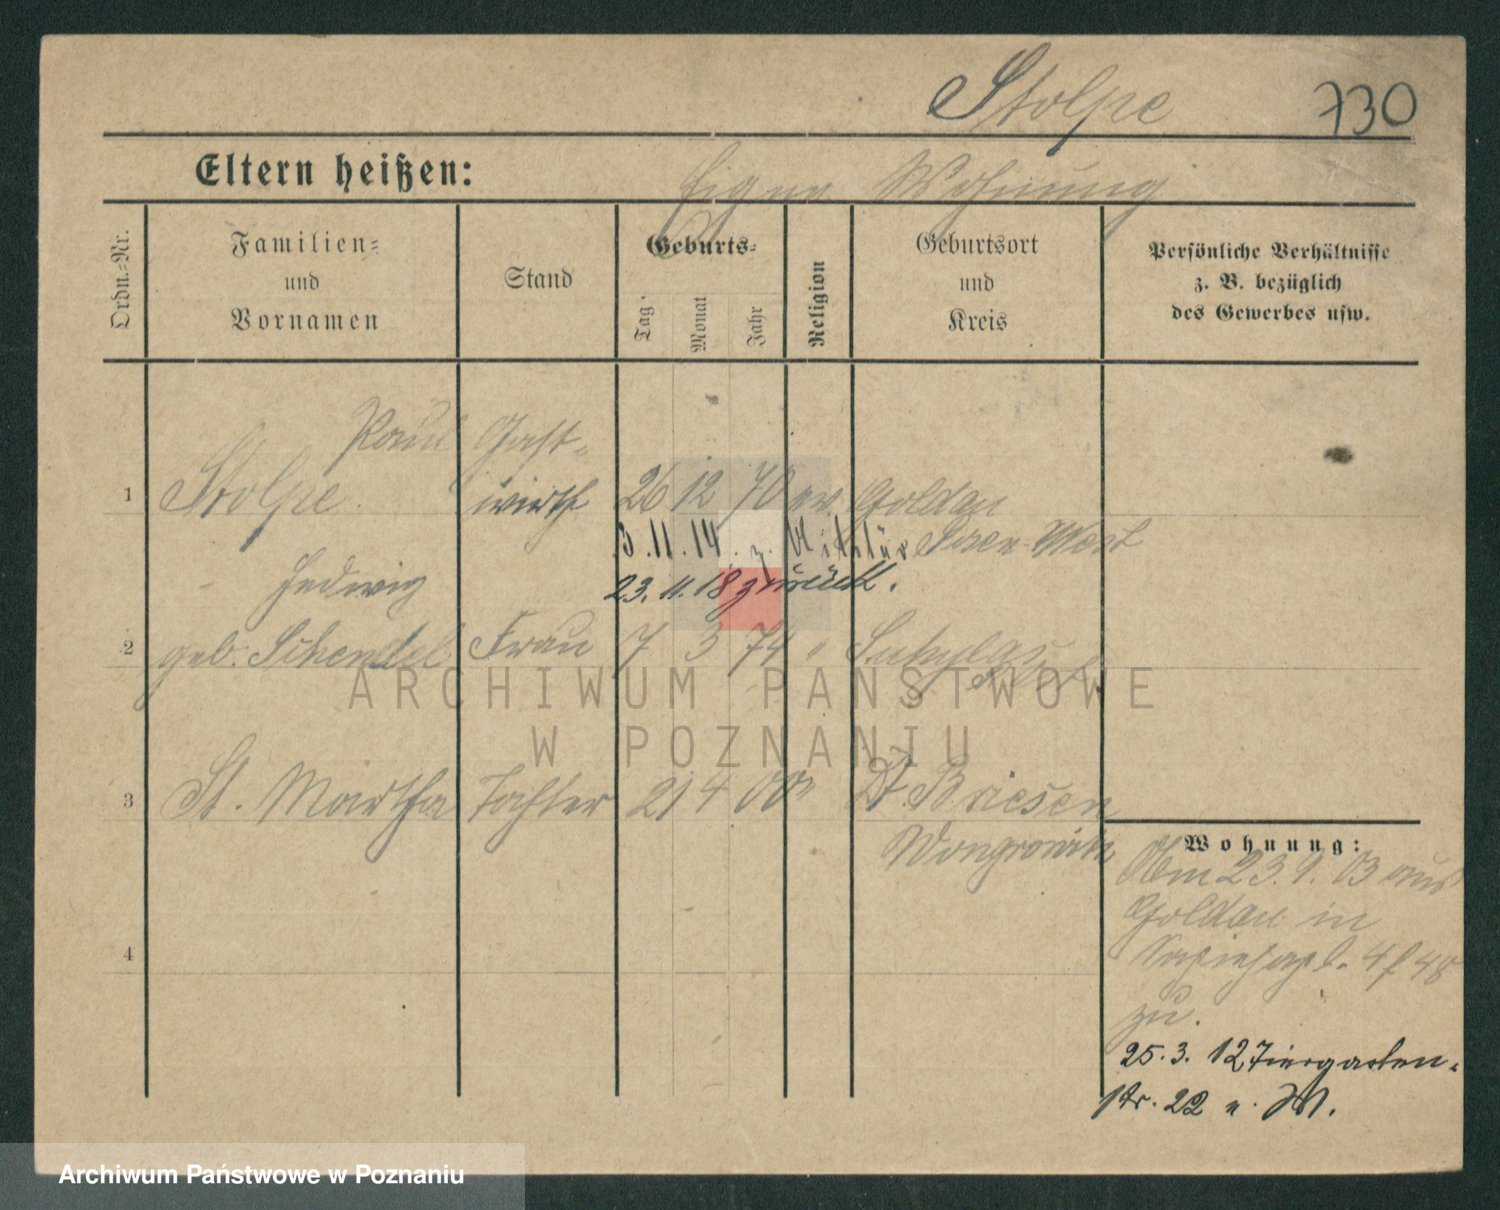 Stolpe 730
Eltern heißen:
Eigene Wohnung
Ordn.-Nr.
Familien-
und
Vornamen
Stand
Geburts-
Tag
Monat
Jahr
Religion
Geburtsort
und
Kreis
Persönliche Verhältnisse
z. B. bezüglich
des Gewerbes usw.
Paul Gast-
1 Stolpe wirth 26 12 70 ev Goldau
3.11.14. z. Militär
23.11.18 zurück.
Hedwig
2 geb. Schendel Frau 7 3 74 "
3 St. Martha Tochter 21 4 00 " Dt. Briesen
Wongrowitz
4
Wohnung:
Am 23.9.03 aus
Goldau in
48
zu.
25.3.12 Tiergarten-
str. 22 n. M.
ARCHIWUM PAŃSTWOWE
W POZNANIU
Archiwum Państwowe w Poznaniu